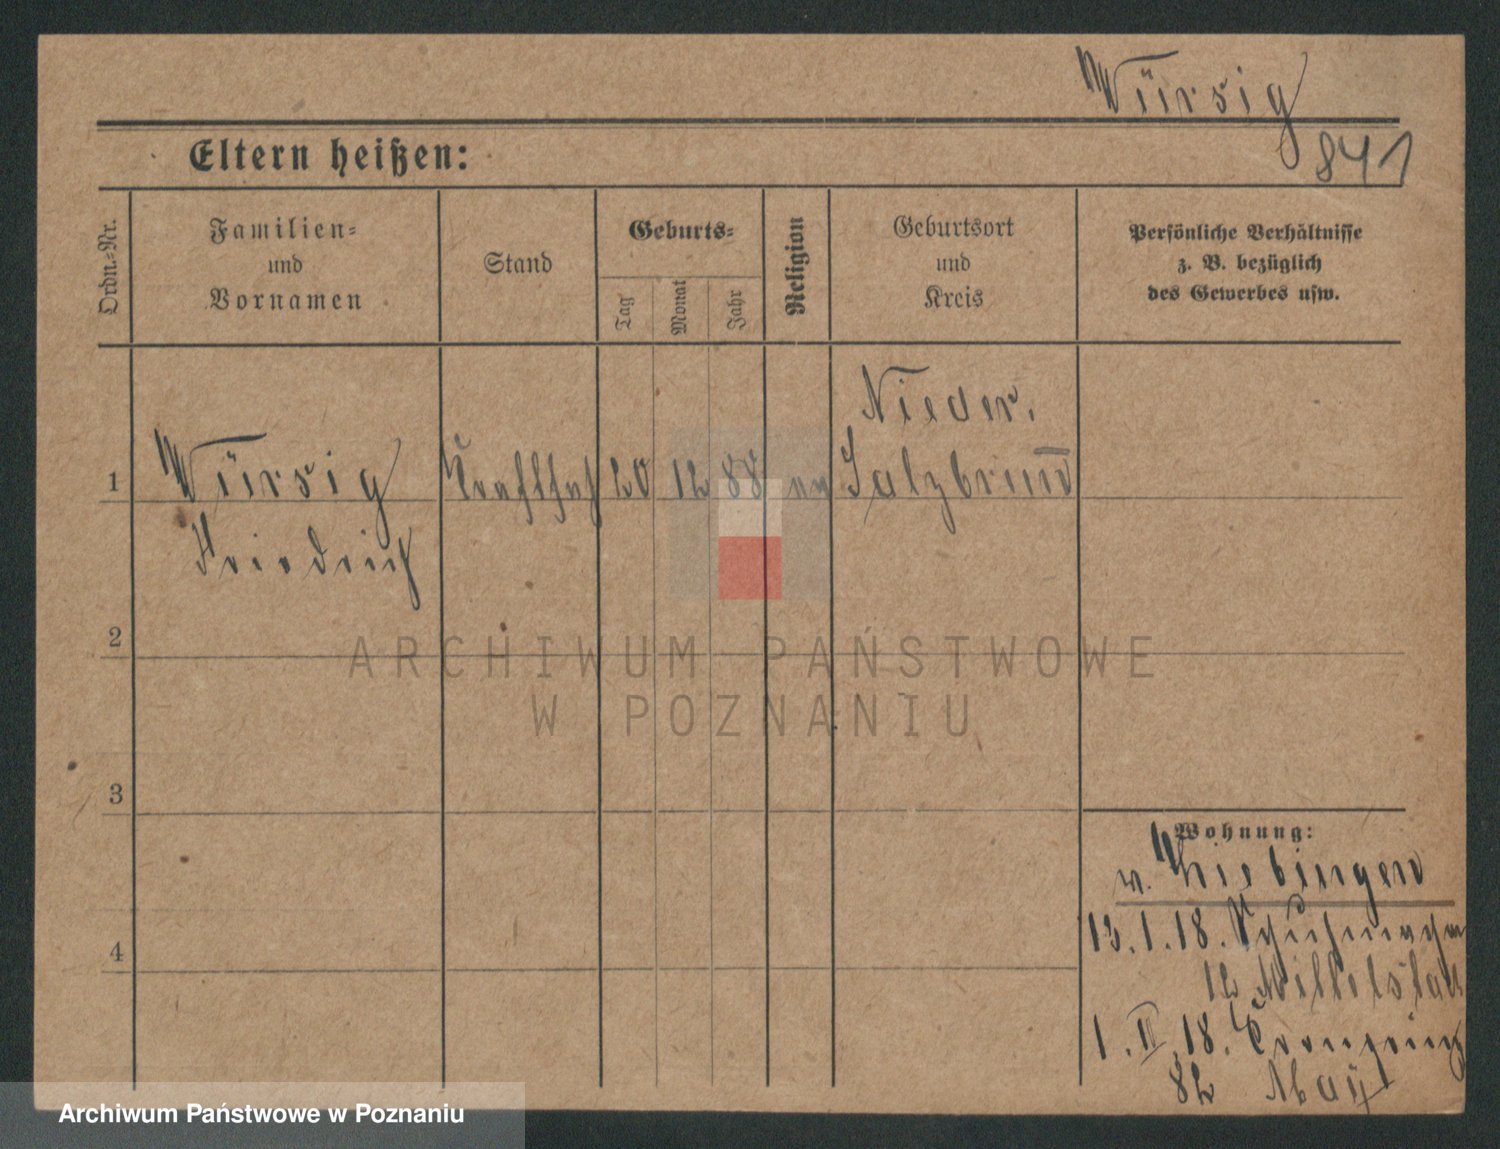 Würsig
841
Eltern heißen:
Ordn.-Nr.
Familien-
und
Vornamen
Stand
Geburts-
Tag
Monat
Jahr
Religion
Geburtsort
und
Kreis
Persönliche Verhältnisse
z. B. bezüglich
des Gewerbes usw.
1
Würsig
Friedrich
20
12
88
Nieder.
Salzbrunn
2
3
4
ARCHIWUM PAŃSTWOWE
W POZNANIU
Wohnung:
13.1.18.
12
1. II. 18.
82
Archiwum Państwowe w Poznaniu